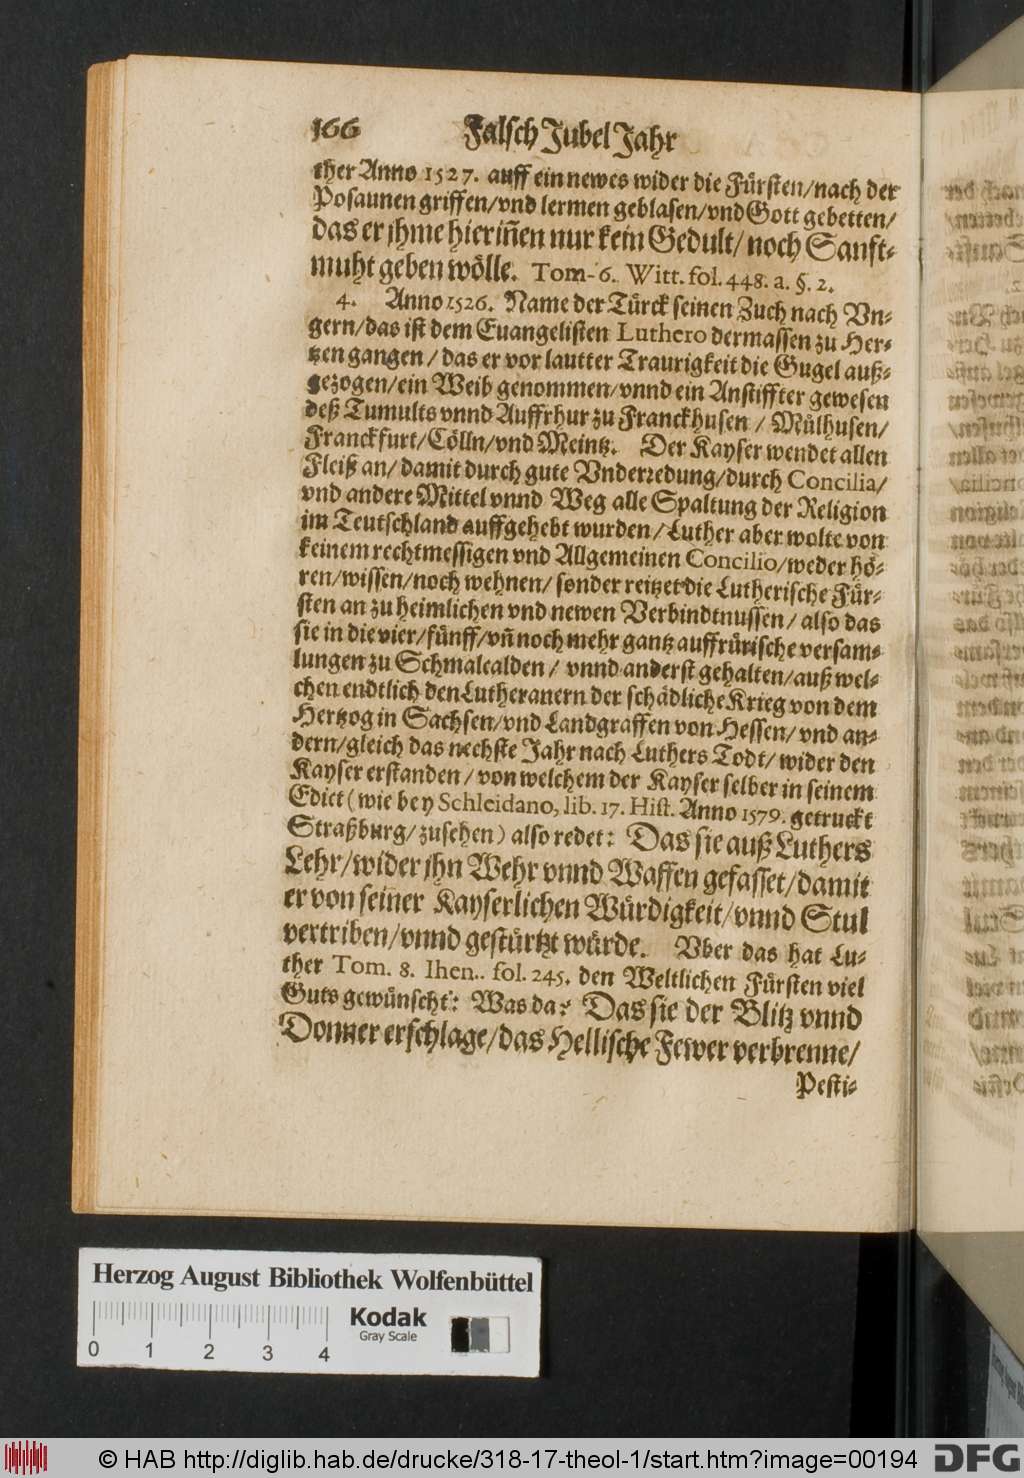 166 Falsch Jubel Jahr
ther Anno 1527. auff ein newes wider die Fürsten/nach der
Posaunen griffen/vnd lermen geblasen/vnd Gott gebetten/
das er jhme hieriñen nur kein Gedult/ noch Sanft-
muht geben wölle. Tom. 6. Witt. fol. 448. a. §. 2.
4. Anno 1526. Name der Türck seinen Zuch nach Vn-
gern/das ist dem Euangelisten Luthero dermassen zu Her-
tzen gangen / das er vor lautter Traurigkeit die Gugel auß-
gezogen/ein Weib genommen/vnnd ein Anstiffter gewesen
deß Tumults vnnd Auffrhur zu Franckhusen / Mülhusen/
Franckfurt/Cölln/vnd Meintz. Der Kayser wendet allen
Fleiß an/ damit durch gute Vnderredung/durch Concilia/
vnd andere Mittel vnnd Weg alle Spaltung der Religion
im Teutschland auffgehebt wurden/ Luther aber wolte von
keinem rechtmessigen vnd Allgemeinen Concilio/weder hö-
ren/wissen/noch wehnen/ sonder reitzet die Lutherische Für-
sten an zu heimlichen vnd newen Verbindtnussen/ also das
sie in die vier/fünff/vñ noch mehr gantz auffrürische versam-
lungen zu Schmalcalden / vnnd anderst gehalten/auß wel-
chen endtlich den Lutheranern der schädliche Krieg von dem
Hertzog in Sachsen/vnd Landgraffen von Hessen/ vnd an-
dern/gleich das nechste Jahr nach Luthers Todt/ wider den
Kayser erstanden / von welchem der Kayser selber in seinem
Edict (wie bey Schleidano, lib. 17. Hist. Anno 1579. getruckt
Straßburg/ zusehen) also redet: Das sie auß Luthers
Lehr/wider jhn Wehr vnnd Waffen gefasset/damit
er von seiner Kayserlichen Würdigkeit/vnnd Stul
vertriben/vnnd gestürtzt würde. Vber das hat Lu-
ther Tom. 8. Ihen.. fol. 245. den Weltlichen Fürsten viel
Guts gewünscht: Was da? Das sie der Blitz vnnd
Donner erschlage/das Hellische Fewer verbrenne/
Pesti-
Herzog August Bibliothek Wolfenbüttel
Kodak
Gray Scale
0 1 2 3 4
© HAB http://diglib.hab.de/drucke/318-17-theol-1/start.htm?image=00194
DFG